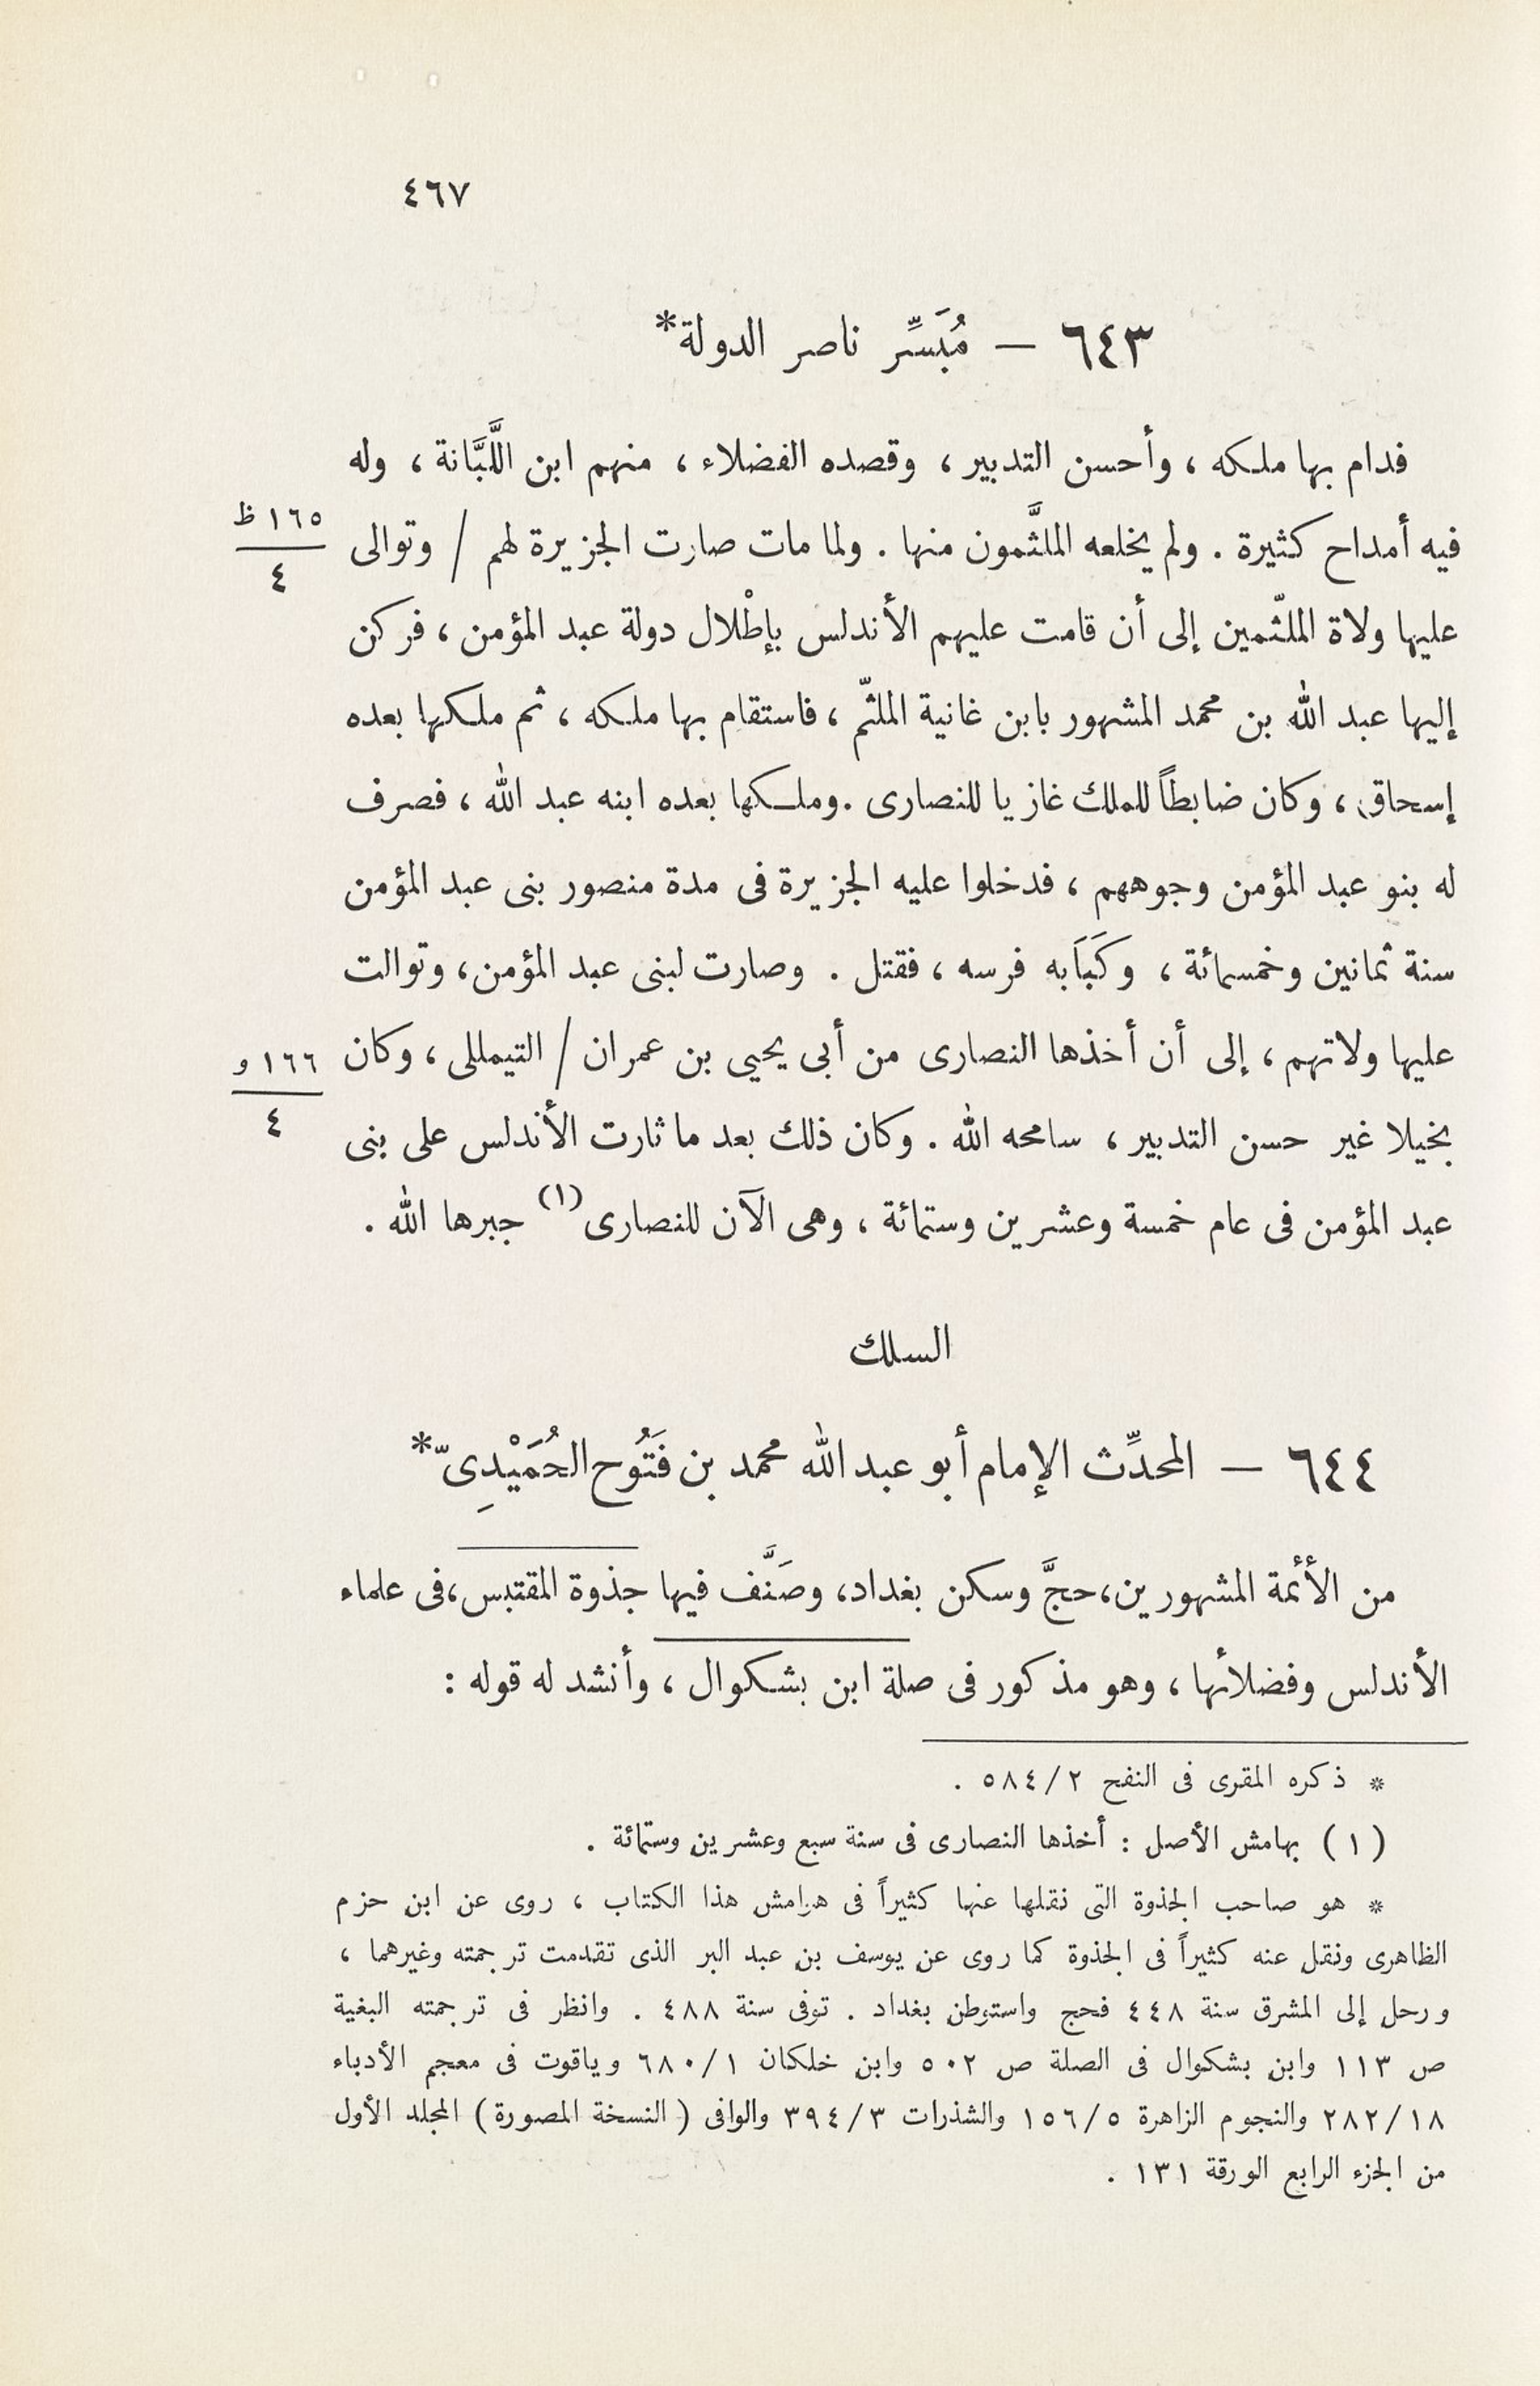 ٤٦٧
٦٤٣ — مُبَسِّر ناصر الدولة*
فدام بها ملكه ، وأحسن التدبير ، وقصده الفضلاء ، منهم ابن اللَّبَّانة ، وله
فيه أمداح كثيرة . ولم يخلعه الملثَّمون منها . ولما مات صارت الجزيرة لهم / وتوالى
١٦٥ ظ
٤
عليها ولاة الملثّمين إلى أن قامت عليهم الأندلس بإطْلال دولة عبد المؤمن ، فركن
إليها عبد الله بن محمد المشهور بابن غانية الملثّم ، فاستقام بها ملكه ، ثم ملكها بعده
إسحاق ، وكان ضابطاً للملك غازيا للنصارى . وملكها بعده ابنه عبد الله ، فصرف
له بنو عبد المؤمن وجوههم ، فدخلوا عليه الجزيرة فى مدة منصور بنى عبد المؤمن
سنة ثمانين وخمسمائة ، وكَبَابه فرسه ، فقتل . وصارت لبنى عبد المؤمن ، وتوالت
عليها ولاتهم ، إلى أن أخذها النصارى من أبى يحيى بن عمران / التيمللى ، وكان
١٦٦ و
٤
بخيلا غير حسن التدبير ، سامحه الله . وكان ذلك بعد ما ثارت الأندلس على بنى
عبد المؤمن فى عام خمسة وعشرين وستمائة ، وهى الآن للنصارى (١) جبرها الله .
السلك
٦٤٤ — المحدِّث الإمام أبو عبد الله محمد بن فَتُوح الحُمَيْدِىّ*
من الأئمة المشهورين ، حجَّ وسكن بغداد ، وصَنَّف فيها جذوة المقتبس ، فى علماء
الأندلس وفضلائها ، وهو مذكور فى صلة ابن بشكوال ، وأنشد له قوله :
* ذكره المقرى فى النفح ٥٨٤/٢ .
(١) بهامش الأصل : أخذها النصارى فى سنة سبع وعشرين وستمائة .
* هو صاحب الجذوة التى نقلها عنها كثيراً فى هوامش هذا الكتاب ، روى عن ابن حزم
الظاهرى ونقل عنه كثيراً فى الجذوة كما روى عن يوسف بن عبد البر الذى تقدمت ترجمته وغيرهما ،
ورحل إلى المشرق سنة ٤٤٨ فحج واستوطن بغداد . توفى سنة ٤٨٨ . وانظر فى ترجمته البغية
ص ١١٣ وابن بشكوال فى الصلة ص ٥٠٢ وابن خلكان ٦٨٠/١ وياقوت فى معجم الأدباء
٢٨٢/١٨ والنجوم الزاهرة ١٥٦/٥ والشذرات ٣٩٤/٣ والوافى ( النسخة المصورة ) المجلد الأول
من الجزء الرابع الورقة ١٣١ .